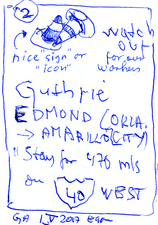 2
watch
out
nice "sign" or for our
"icon" workers
Guthrie
EDMOND (OKLA.
→ AMARILLO CITY)
"Stay for 470 mls
on 40 WEST
GA 2017